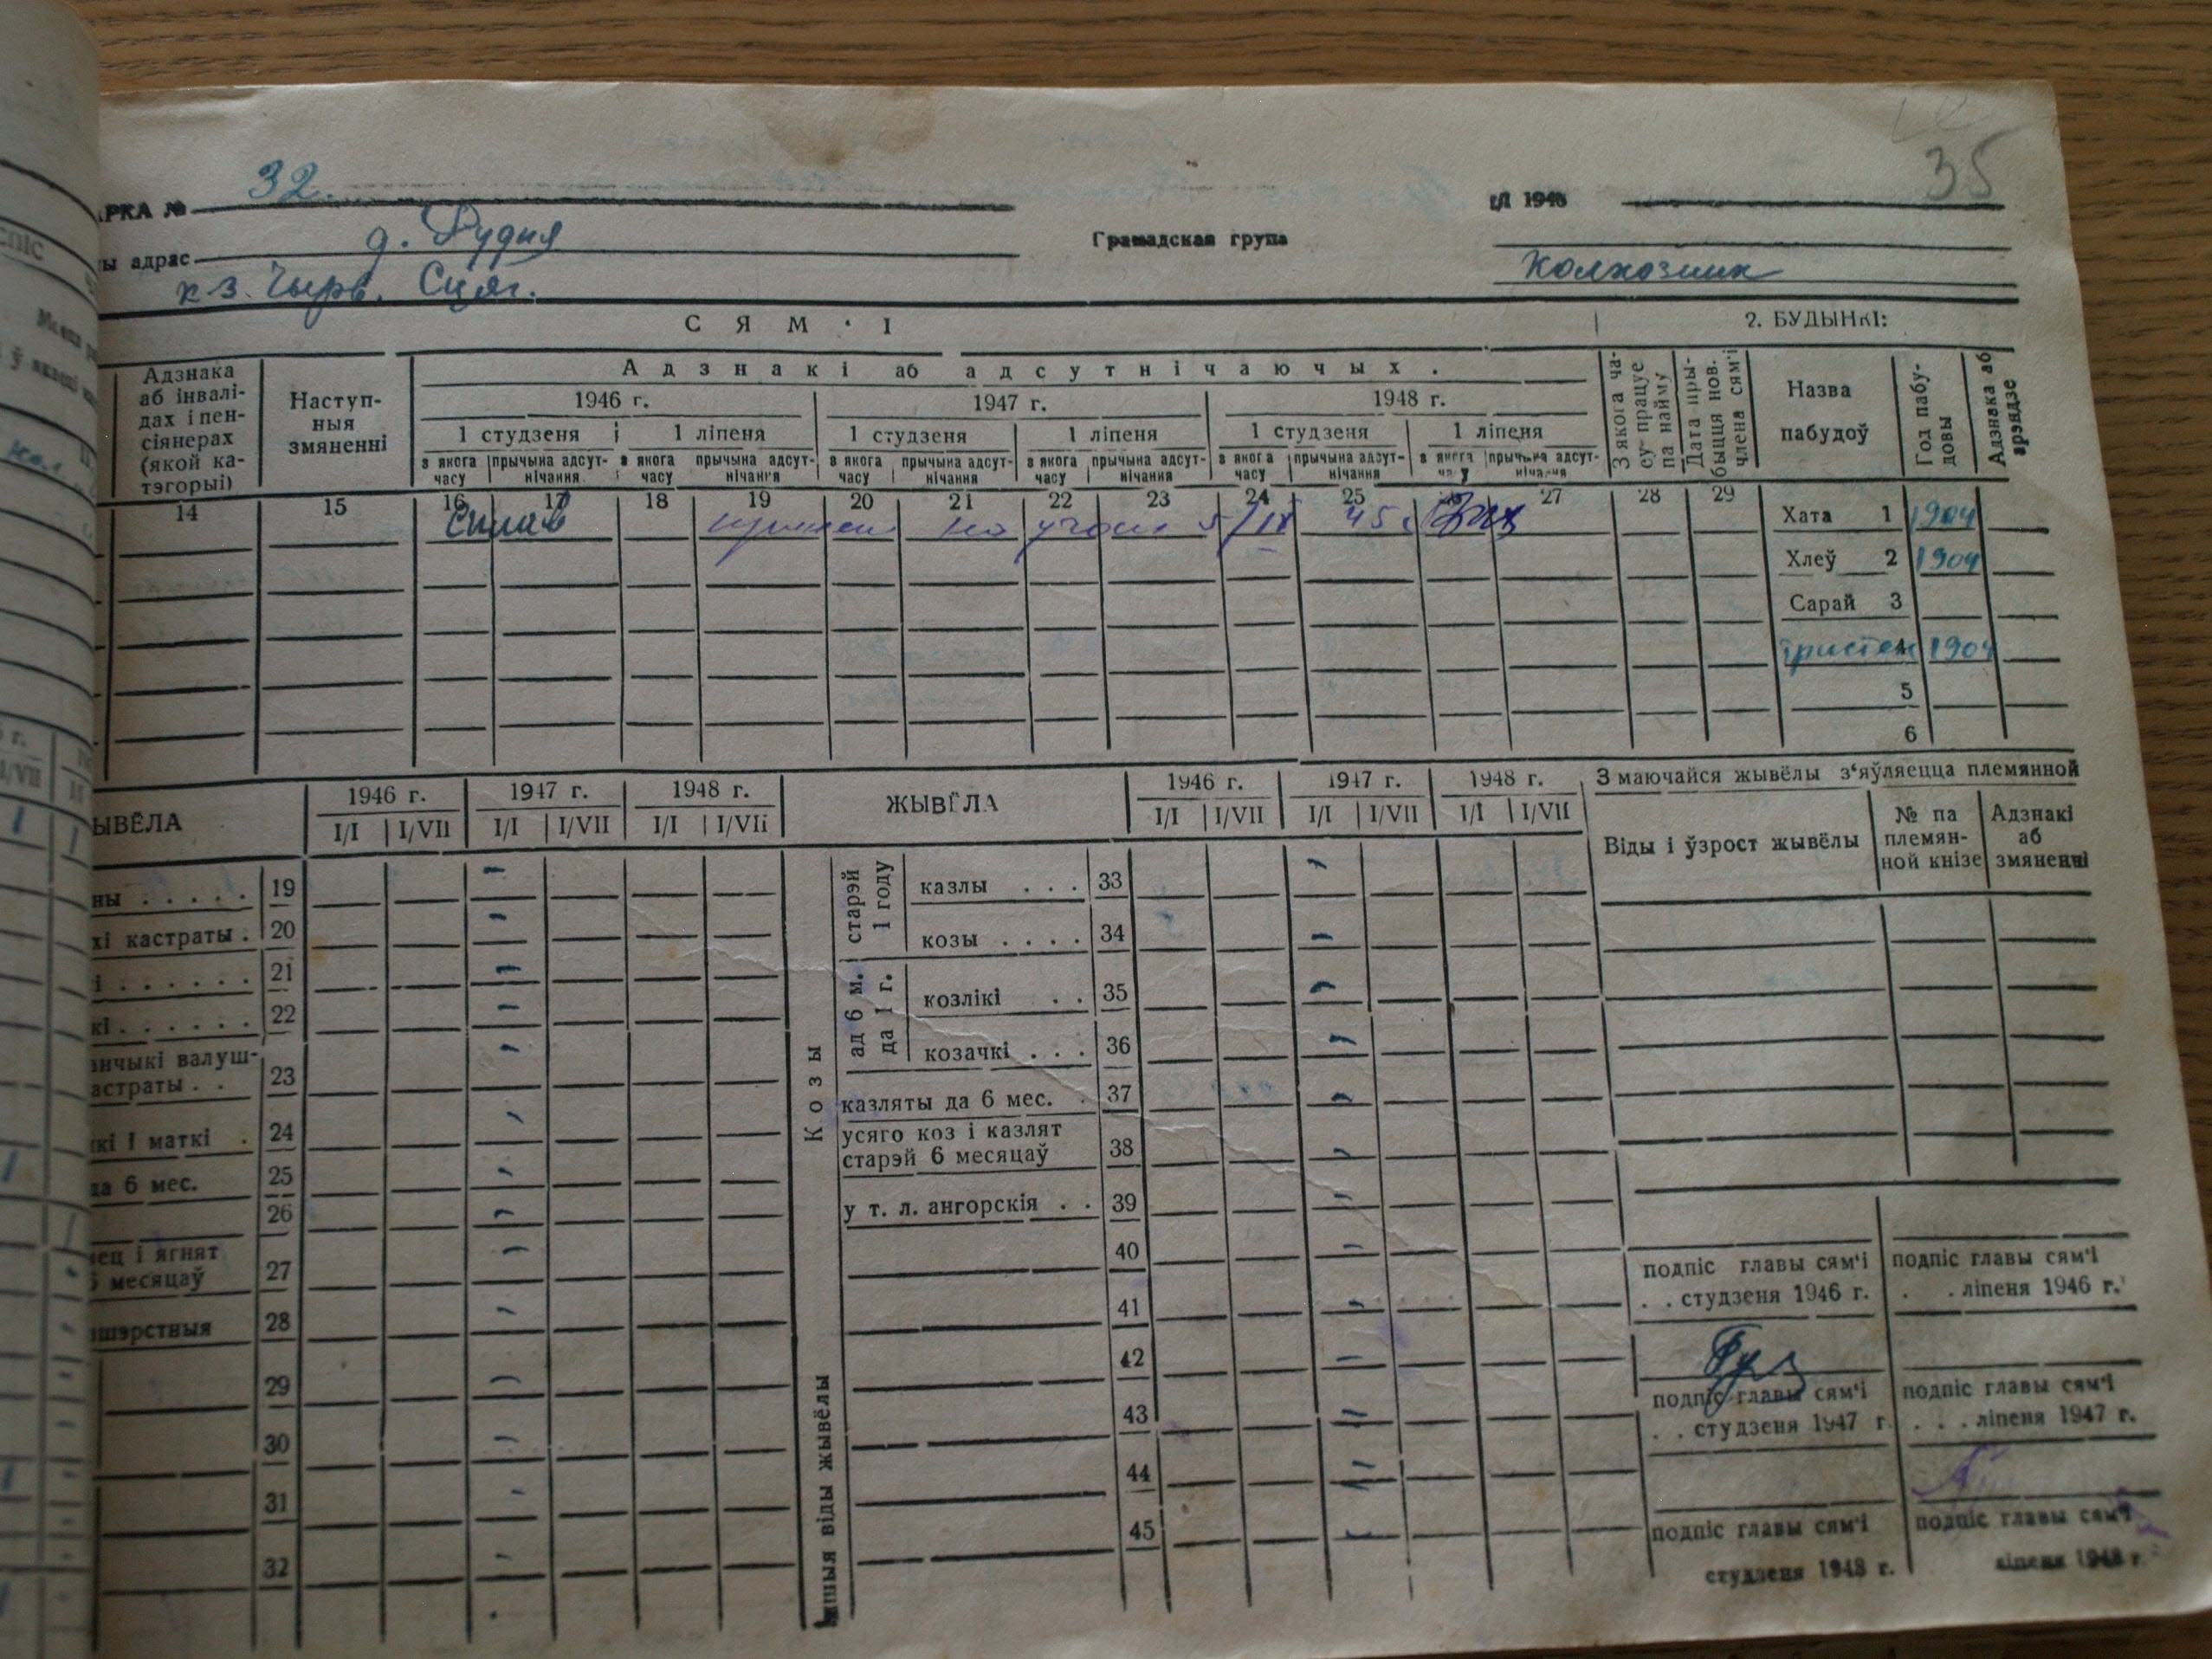 35
АРКА № 32.
І/І 1946
ы адрас д. Рудня
Грамадская група
к-з. Чырв. Сцяг.
Колхозник
СЯМ'І
2. БУДЫНКІ:
Адзнака аб інвалі-
дах і пен-
сіянерах
(якой ка-
тэгорыі)
Наступ-
ныя
змяненні
Адзнакі аб адсутнічаючых.
1946 г.
1947 г.
1948 г.
1 студзеня
1 ліпеня
1 студзеня
1 ліпеня
1 студзеня
1 ліпеня
з якога часу
прычына адсут-
нічання
з якога часу
прычына адсут-
нічання
з якога часу
прычына адсут-
нічання
з якога часу
прычына адсут-
нічання
з якога часу
прычына адсут-
нічання
з якога часу
прычына адсут-
нічання
З якога ча-
су працуе
па найму
Дата пры-
быцця нов.
члена сям'і
Назва
пабудоў
Год пабу-
довы
Адзнака аб
арэндзе
14 15 16 17 18 19 20 21 22 23 24 25 27 28 29
на 5/IX 45
Хата 1 1904
Хлеў 2 1904
Сарай 3
тристен 1904
5
6
ЫВЁЛА
1946 г.
1947 г.
1948 г.
І/І І/VІІ І/І І/VІІ І/І І/VІІ
ЖЫВЁЛА
1946 г.
1947 г.
1948 г.
І/І І/VІІ І/І І/VІІ І/І І/VІІ
З маючайся жывёлы з'яўляецца племянной
Віды і ўзрост жывёлы
№ па
племян-
ной кнізе
Адзнакі
аб
змяненні
ны 19
хі кастраты 20
і 21
кі 22
анчыкі валуш-
астраты 23
кі і маткі 24
да 6 мес. 25
26
вец і ягнят
6 месяцаў 27
шэрстныя 28
29
30
31
32
Козы
старэй
1 году
казлы 33
козы 34
ад 6 м.
да 1 г.
козлікі 35
козачкі 36
казляты да 6 мес. 37
усяго коз і казлят
старэй 6 месяцаў 38
у т. л. ангорскія 39
40
іншыя віды жывёлы
41
42
43
44
45
подпіс главы сям'і
студзеня 1946 г.
подпіс главы сям'і
ліпеня 1946 г.
подпіс главы сям'і
студзеня 1947 г.
подпіс главы сям'і
ліпеня 1947 г.
подпіс главы сям'і
студзеня 1948 г.
подпіс главы сям'і
ліпеня 1948 г.